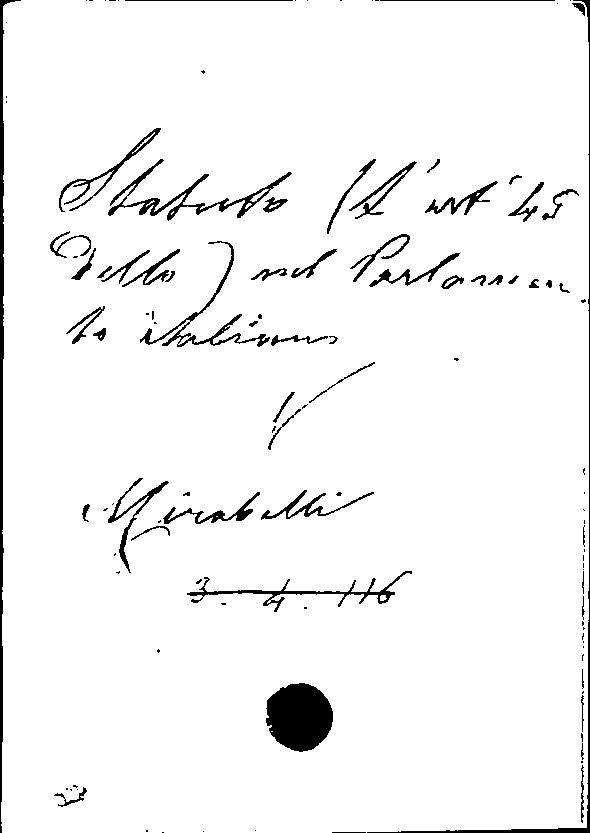 Statuto (L'art 45
dello) nel Parlamen
to italiano
Mirabelli
3. 4. 116